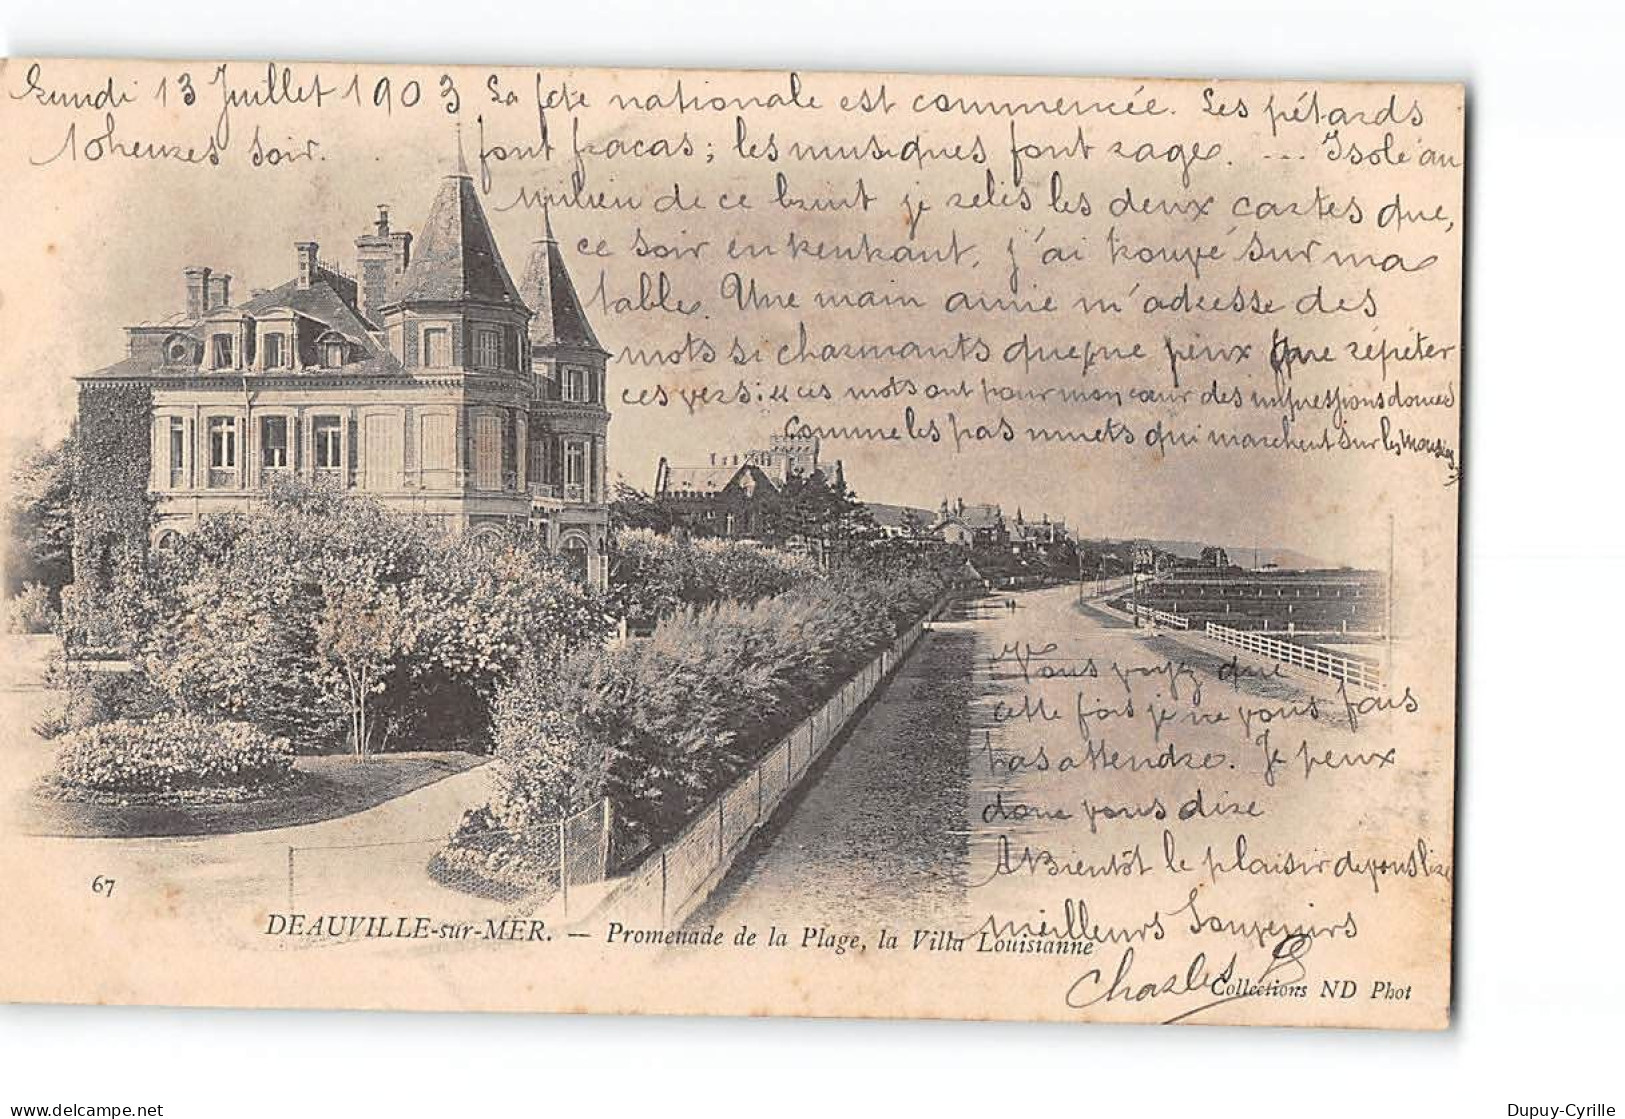 Lundi 13 Juillet 1903
10 heures soir.
La fete nationale est commencée. Les pétards
font fracas; les musiques font rage. ... Isolé au
milieu de ce bruit je relis les deux cartes que,
ce soir en rentrant, j'ai trouvé sur ma
table. Une main amie m'adresse des
mots si charmants que je ne peux que répéter
ces vers: "ces mots ont pour mon cœur des impressions douces
Comme les pas muets qui marchent sur les mousses"
Vous voyez que
cette fois je ne vous fais
pas attendre. Je peux
donc vous dire
A Bientôt le plaisir de vous lire
meilleurs Souvenirs
Charles
67
DEAUVILLE-sur-MER. — Promenade de la Plage, la Villa Louisianne
Collections ND Phot
Dupuy-Cyrille